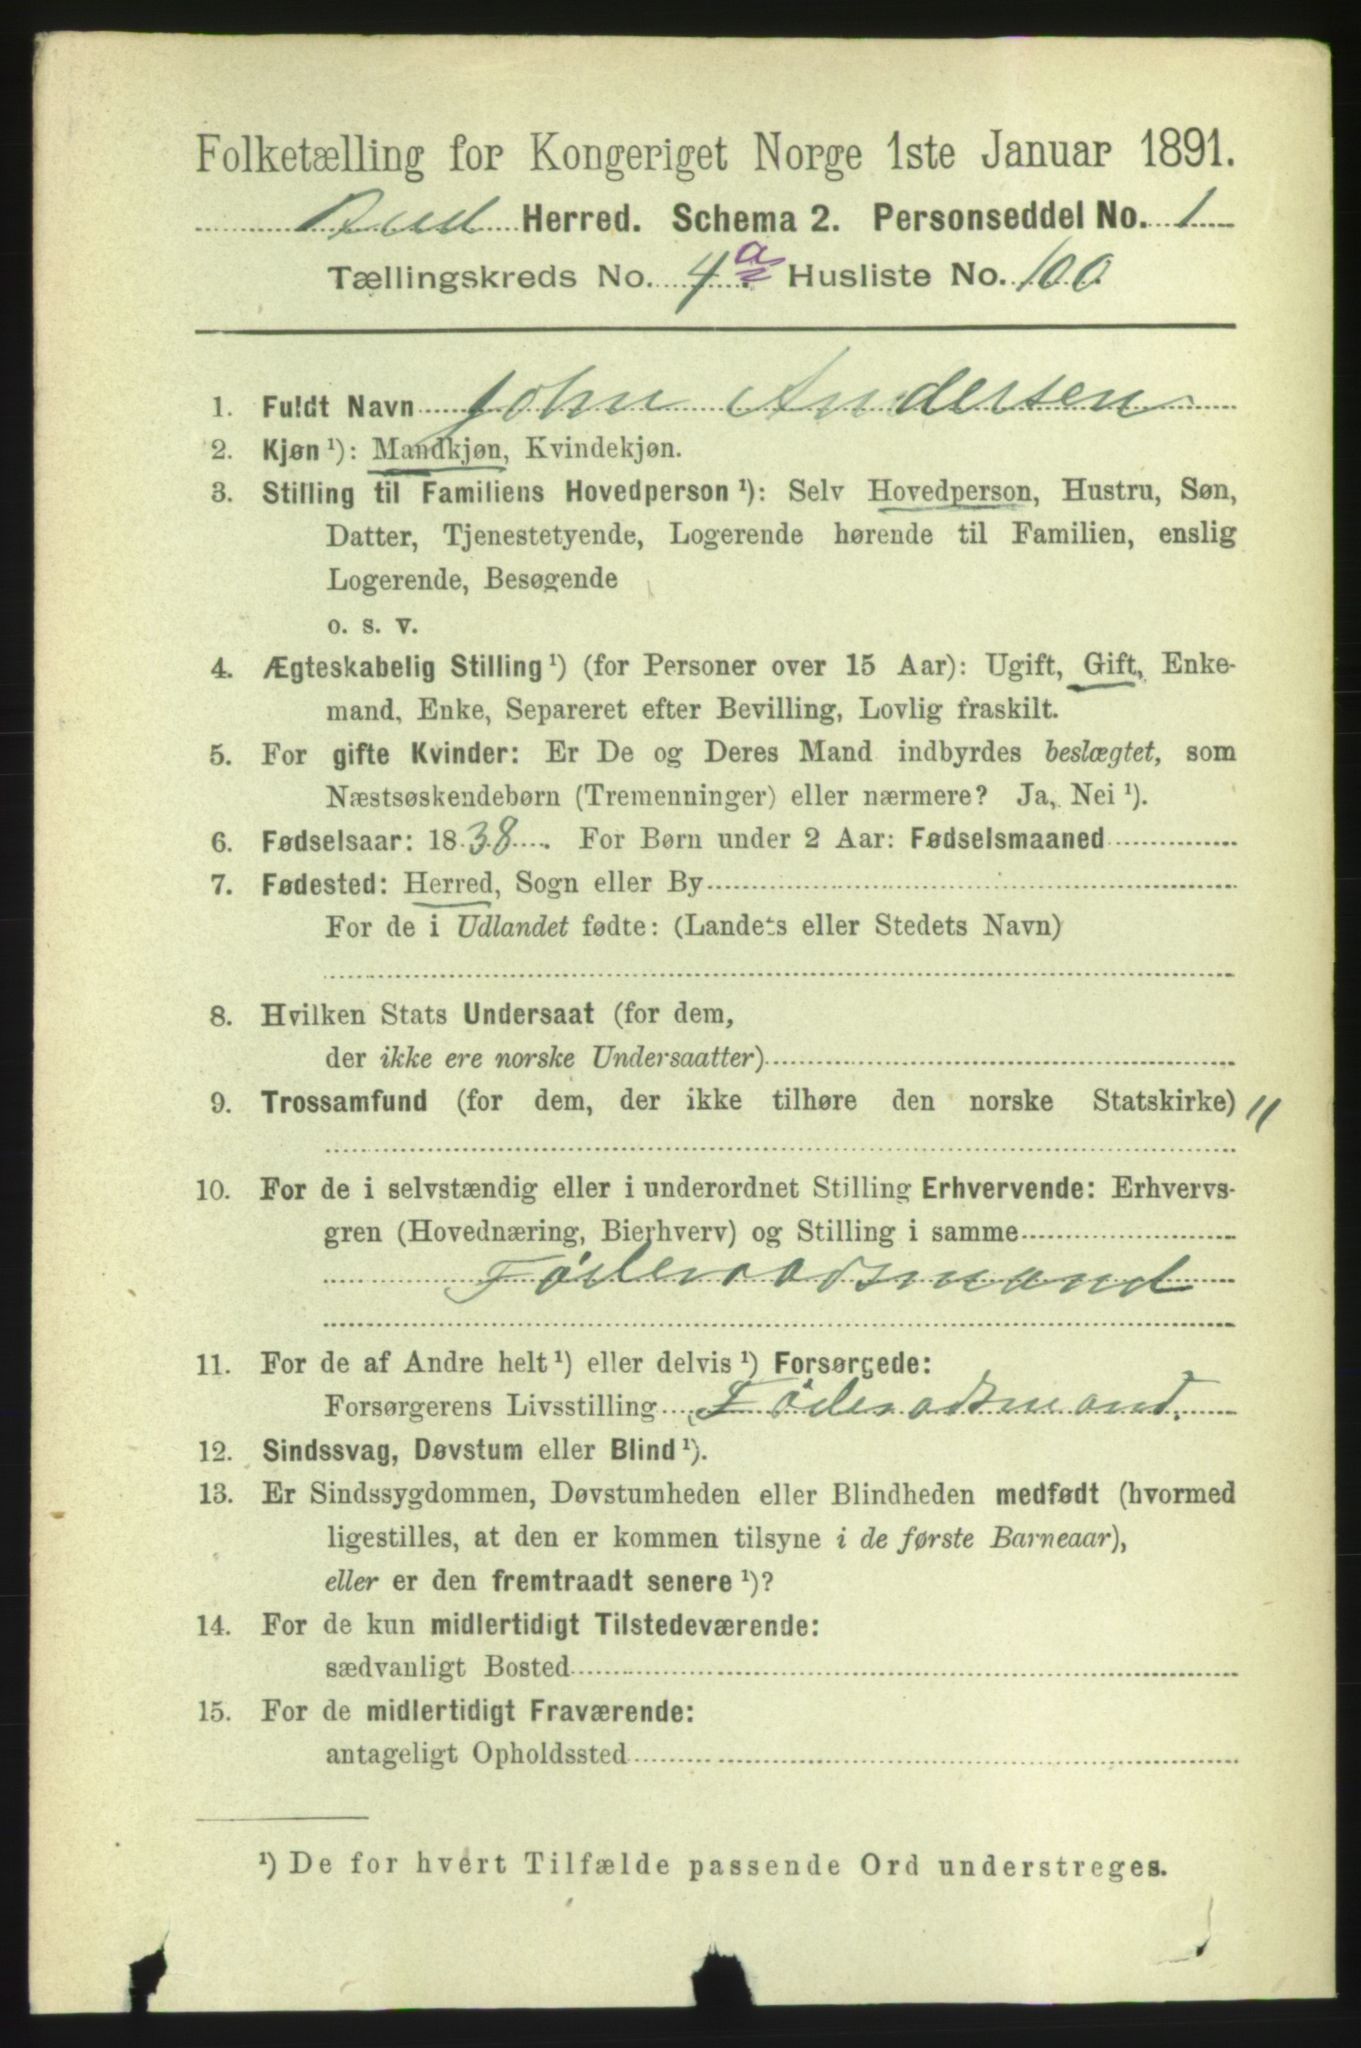 Folketælling for Kongeriget Norge 1ste Januar 1891.
Bud Herred. Schema 2. Personseddel No. 1
Tællingskreds No. 4 a Husliste No. 100
1. Fuldt Navn John Andersen
2. Kjøn ¹): Mandkjøn, Kvindekjøn.
3. Stilling til Familiens Hovedperson ¹): Selv Hovedperson, Hustru, Søn,
Datter, Tjenestetyende, Logerende hørende til Familien, enslig
Logerende, Besøgende
o. s. v.
4. Ægteskabelig Stilling ¹) (for Personer over 15 Aar): Ugift, Gift, Enke-
mand, Enke, Separeret efter Bevilling, Lovlig fraskilt.
5. For gifte Kvinder: Er De og Deres Mand indbyrdes beslægtet, som
Næstsøskendebørn (Tremenninger) eller nærmere? Ja, Nei ¹).
6. Fødselsaar: 1838. For Børn under 2 Aar: Fødselsmaaned
7. Fødested: Herred, Sogn eller By
For de i Udlandet fødte: (Landets eller Stedets Navn)
8. Hvilken Stats Undersaat (for dem,
der ikke ere norske Undersaatter)
9. Trossamfund (for dem, der ikke tilhøre den norske Statskirke) 11
10. For de i selvstændig eller i underordnet Stilling Erhvervende: Erhvervs-
gren (Hovednæring, Bierhverv) og Stilling i samme
Føderaadsmand
11. For de af Andre helt ¹) eller delvis ¹) Forsørgede:
Forsørgerens Livsstilling Føderadsmand.
12. Sindssvag, Døvstum eller Blind ¹).
13. Er Sindssygdommen, Døvstumheden eller Blindheden medfødt (hvormed
ligestilles, at den er kommen tilsyne i de første Barneaar),
eller er den fremtraadt senere ¹)?
14. For de kun midlertidigt Tilstedeværende:
sædvanligt Bosted
15. For de midlertidigt Fraværende:
antageligt Opholdssted
¹) De for hvert Tilfælde passende Ord understreges.